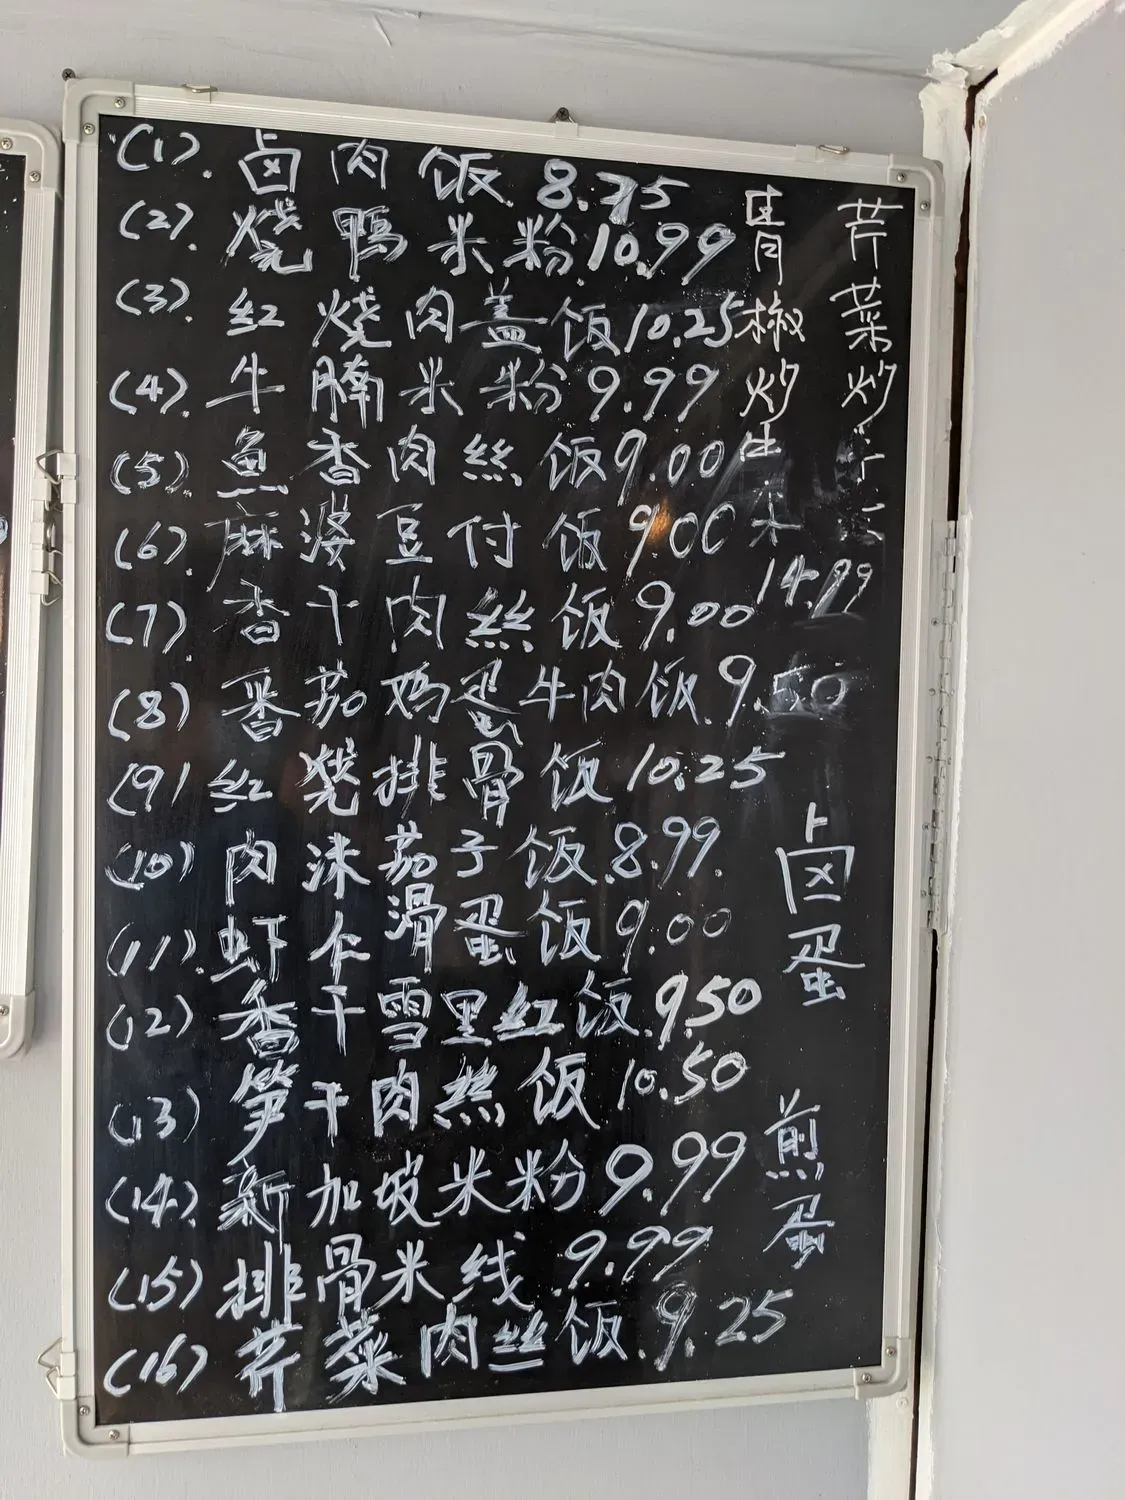 (1). 卤肉饭 8.75
(2). 烧鸭米粉 10.99
(3). 红烧肉盖饭 10.25
(4). 牛腩米粉 9.99
(5). 鱼香肉丝饭 9.00
(6). 麻婆豆付饭 9.00
(7). 香干肉丝饭 9.00
(8) 番茄鸡蛋牛肉饭 9.50
(9) 红烧排骨饭 10.25
(10) 肉沫茄子饭 8.99
(11) 虾仁滑蛋饭 9.00
(12) 香干雪里红饭 9.50
(13) 笋干肉丝饭 10.50
(14) 新加坡米粉 9.99
(15) 排骨米线 9.99
(16) 芹菜肉丝饭 9.25
芹菜炒
椒炒
14.99
卤蛋
煎蛋